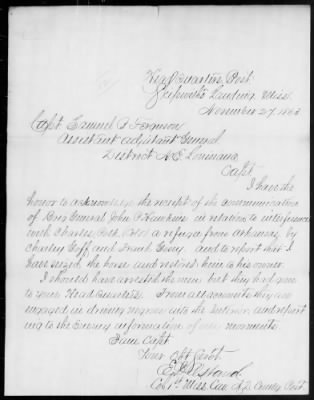 Head Quarters, Post
Skipwith's Landing Miss.
November 27. 1863
Capt Samuel P. Ferguson
Assistant Adjutant General
District N.E. Louisiana
Capt
I have the
honor to acknowledge the receipt of the communication
of Brig General John P Hawkins in relation to interference
with Charles a refugee from Arkansas by
Charley Goff and Frank Gary. and to report that I
have seized the horse and restored him to his owner.
I should have arrested the men but they had gone
to your Head Quarters. From all accounts they are
engaged in driving negroes into the interior and report
ing to the Enemy information of our movements
I am Capt
Your Obt Servt
Col 1st Miss. Cav. A.D. Comdg Post.